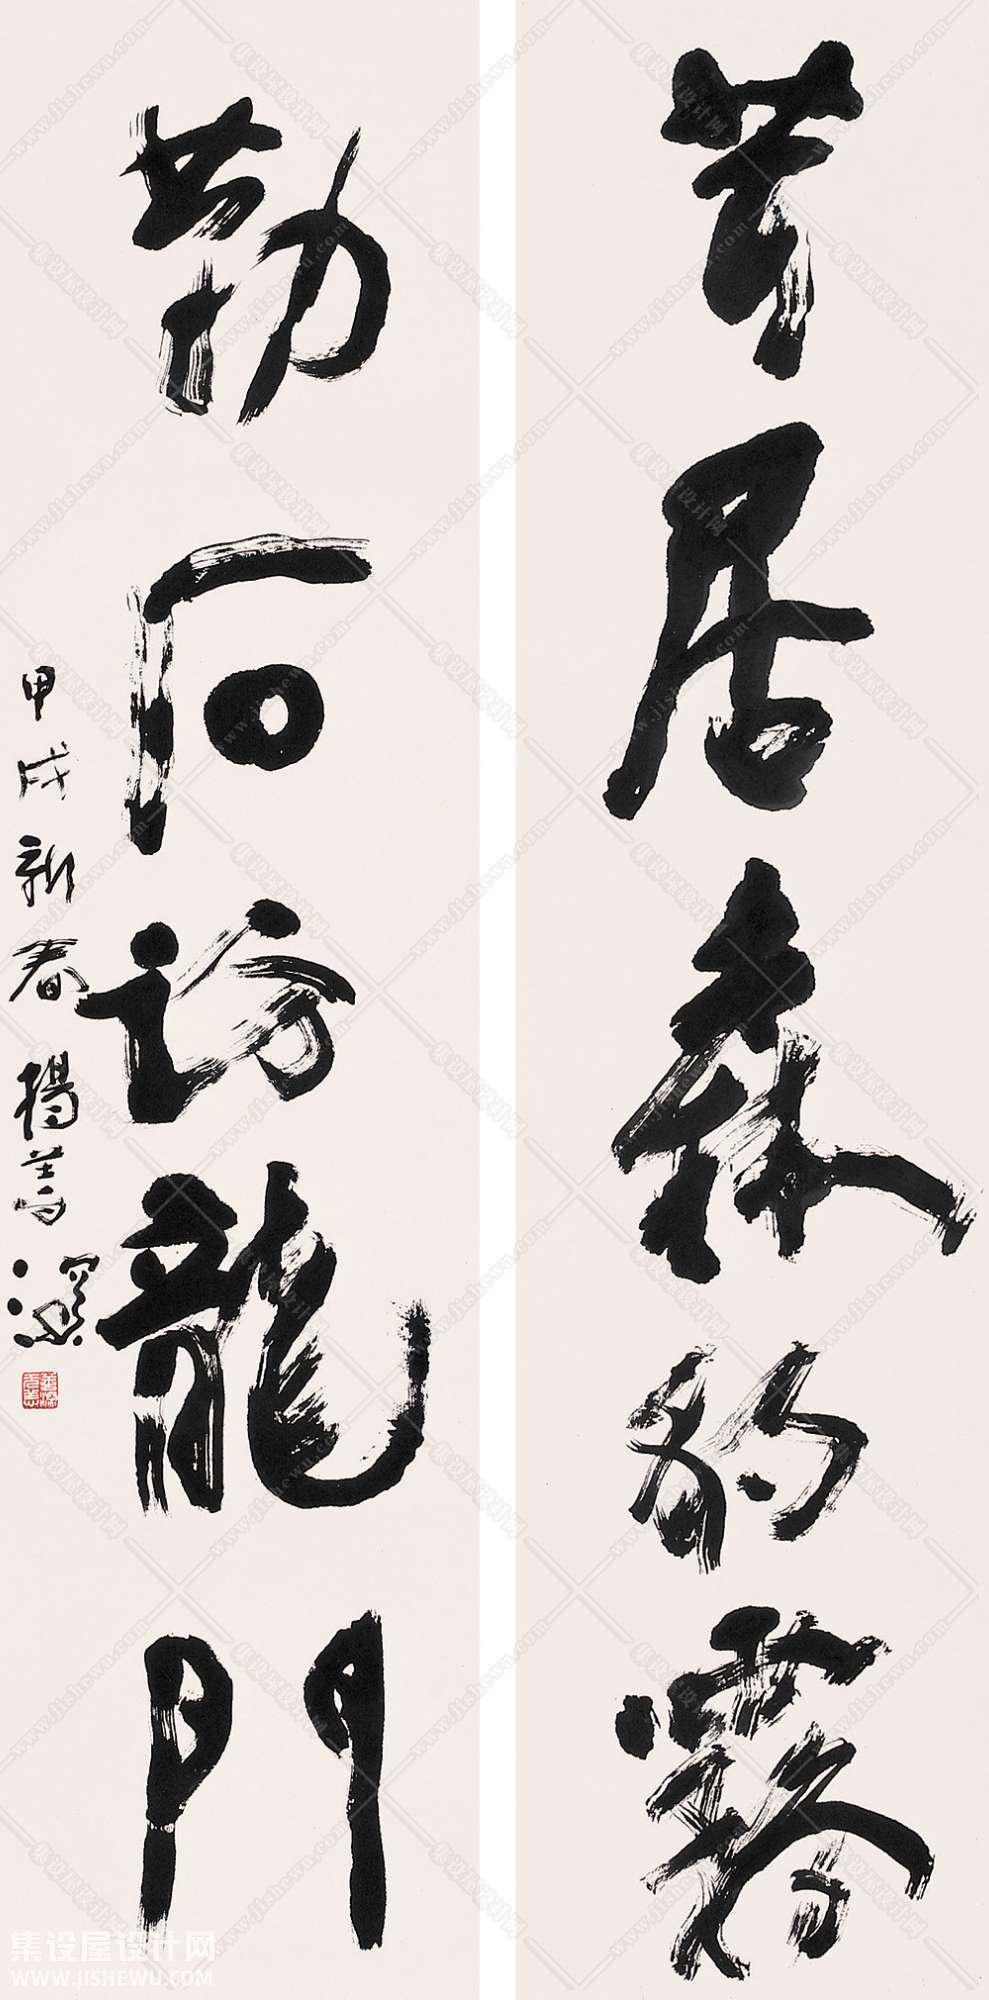 居森豹霧
勒石訪龍門
甲戌新春楊善深
集设屋设计网
WWW.JISHEWU.COM